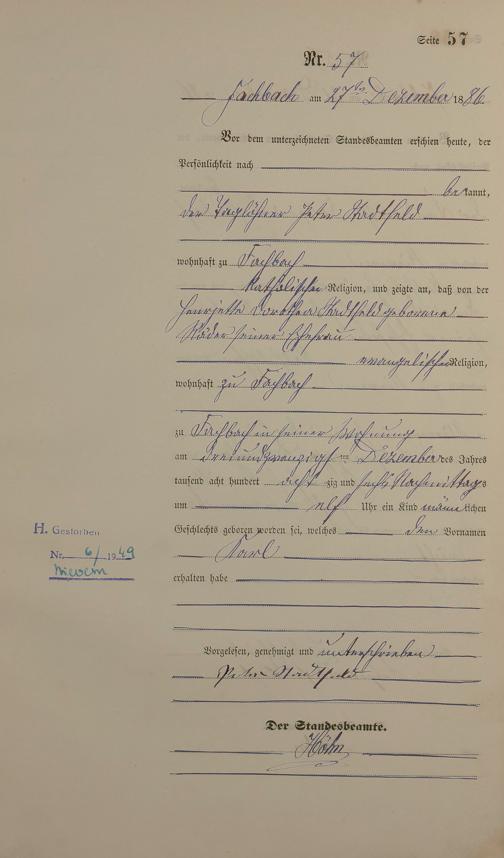 Seite 57
Nr. 57
Fachbach am 27ten Dezember 1886.
Vor dem unterzeichneten Standesbeamten erschien heute, der
Persönlichkeit nach
bekannt,
der Peter Stadtfeld
wohnhaft zu Fachbach
katholischer Religion, und zeigte an, daß von der
Henriette Dorothea Stadtfeld geborene
Räder seiner Ehefrau
evangelischer Religion,
wohnhaft zu Fachbach
zu Fachbach in seiner Wohnung
am dreiundzwanzigsten Dezember des Jahres
tausend acht hundert achtzig und sechs Nachmittags
um elf Uhr ein Kind männlichen
Geschlechts geboren worden sei, welches den Vornamen
Karl
erhalten habe
H. Gestorben
Nr. 6/1949
Nievern
Vorgelesen, genehmigt und unterschrieben
Peter Stadtfeld
Der Standesbeamte.
Höhn